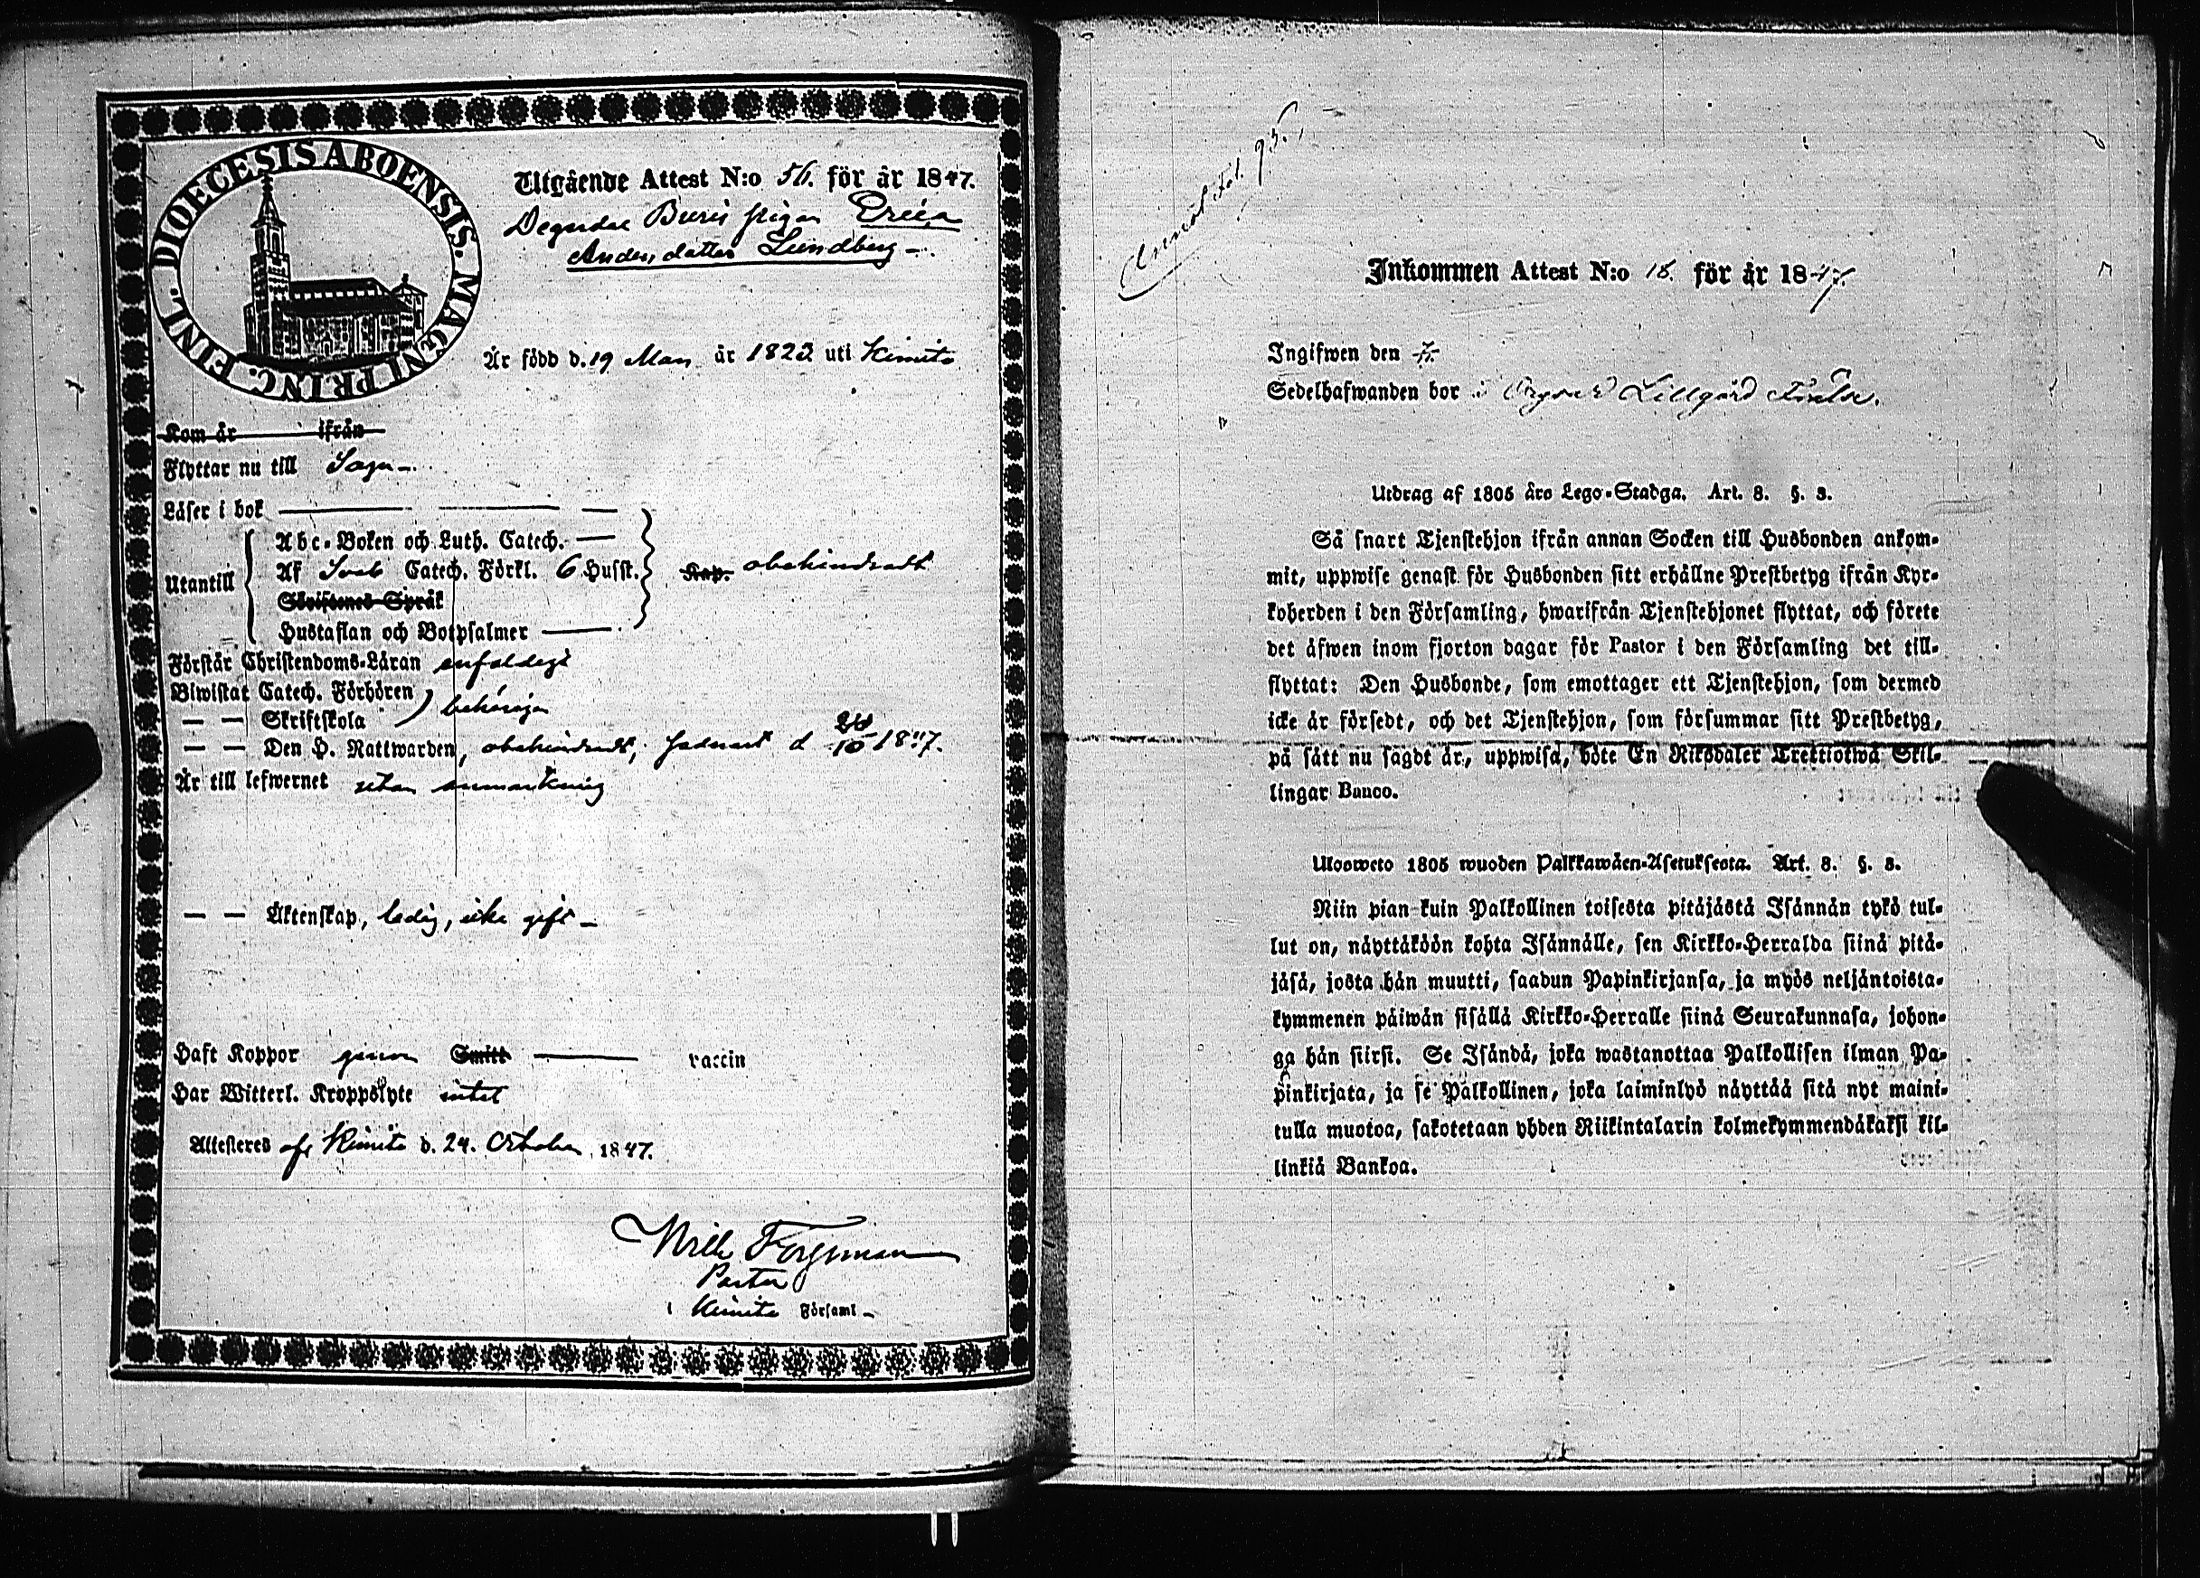 DIOECESIS ABOENSIS. MAGNI PRINC. FINL.
Utgående Attest N:o 56. för år 1847.
Degerdal Bieris pigan Erica
Andersdotter Lundberg –.
Är född d. 19 Mars år 1823 uti Kimito
Kom år ifrån
Flyttar nu till Sagu –.
Läser i bok
Abc-Boken och Luth. Catech.
Utantill
Af Sveb Catech. Förkl. 6 Husst.
Kap. obehindradt
Skriftenes Språk
Hustaflan och Botpsalmer
Förstår Christendoms-Läran enfaldigt
Biwistat Catech. Förhören
— — Skriftskola
behörigen
— — Den H. Nattwarden, obehindradt, d 24/10 1847.
Är till lefwernet utan anmärkning
— — Äktenskap, ledig, icke gift –
Haft Koppor genom Smitt vaccin
Har Witterl. Kroppslyte intet
Attesteras af Kimito d. 24. October 1847.
Wilh Forsman
Pastor
i Kimito Församl –
fol. 95.
Inkommen Attest N:o 18. för år 1847.
Ingifwen den
Sedelhafwanden bor i Lillgård
Utdrag af 1805 års Lego-Stadga. Art. 8. §. 3.
Så snart Tjenstehjon ifrån annan Socken till Husbonden ankom-
mit, uppwise genast för Husbonden sitt erhållne Prestbetyg ifrån Kyr-
koherden i den Församling, hwarifrån Tjenstehjonet flyttat, och förete
det äfwen inom fjorton dagar för Pastor i den Församling det till-
flyttat: Den Husbonde, som emottager ett Tjenstehjon, som dermed
icke är försedt, och det Tjenstehjon, som försummar sitt Prestbetyg,
på sätt nu sagdt är, uppwisa, böte En Riksdaler Trettiotwå Skil-
lingar Banco.
Uloswето 1805 wuoden Palkkawäen-Asetuksesta. Art. 8. §. 3.
Niin pian kuin Palkollinen toisesta pitäjästä Isännän tykö tul-
lut on, näyttäköön kohta Isännälle, sen Kirkko-Herralda siinä pitä-
jäsä, josta hän muutti, saadun Papinkirjansa, ja myös neljäntoista-
kymmenen päiwän sisällä Kirkko-Herralle siinä Seurakunnasa, johon-
ga hän siirsi. Se Isändä, joka wastanottaa Palkollisen ilman Pa-
pinkirjata, ja se Palkollinen, joka laiminlyö näyttää sitä nyt maini-
tulla muotoa, sakotetaan yhden Riikintalarin kolmekymmendäkaksi kil-
linkiä Bankoa.